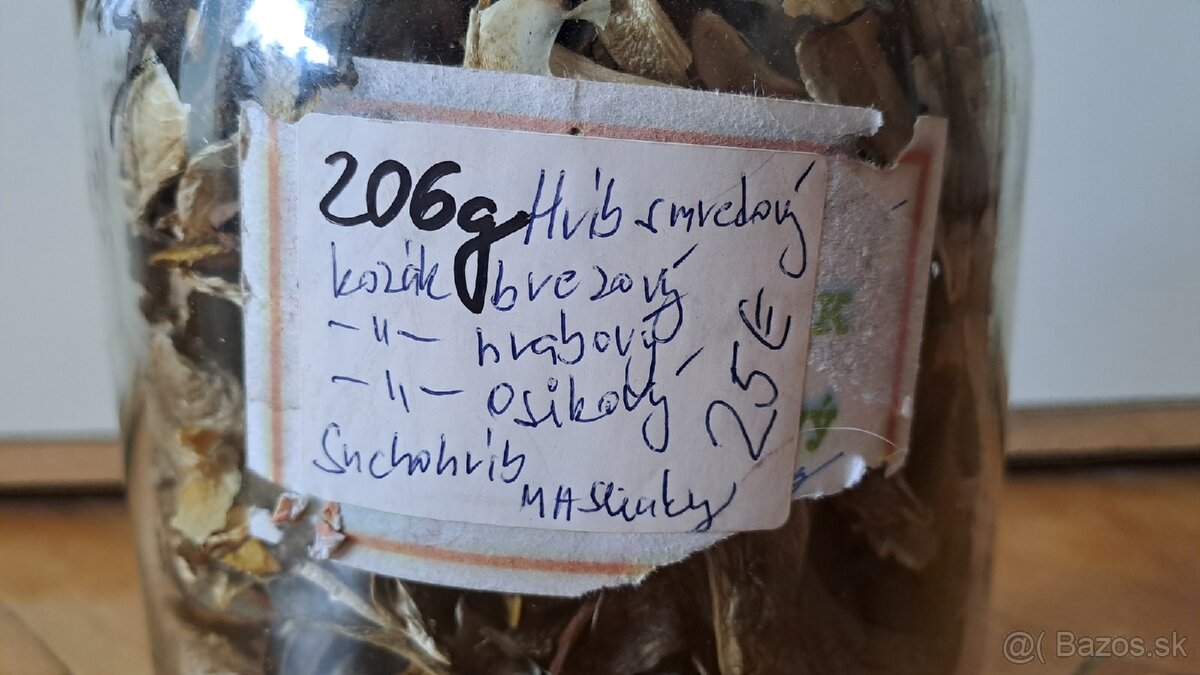 206g Hríb smrekový
kozák brezový
-"- hrabový
-"- osikový
25€
Suchohríb
MASliaky
@( Bazos.sk